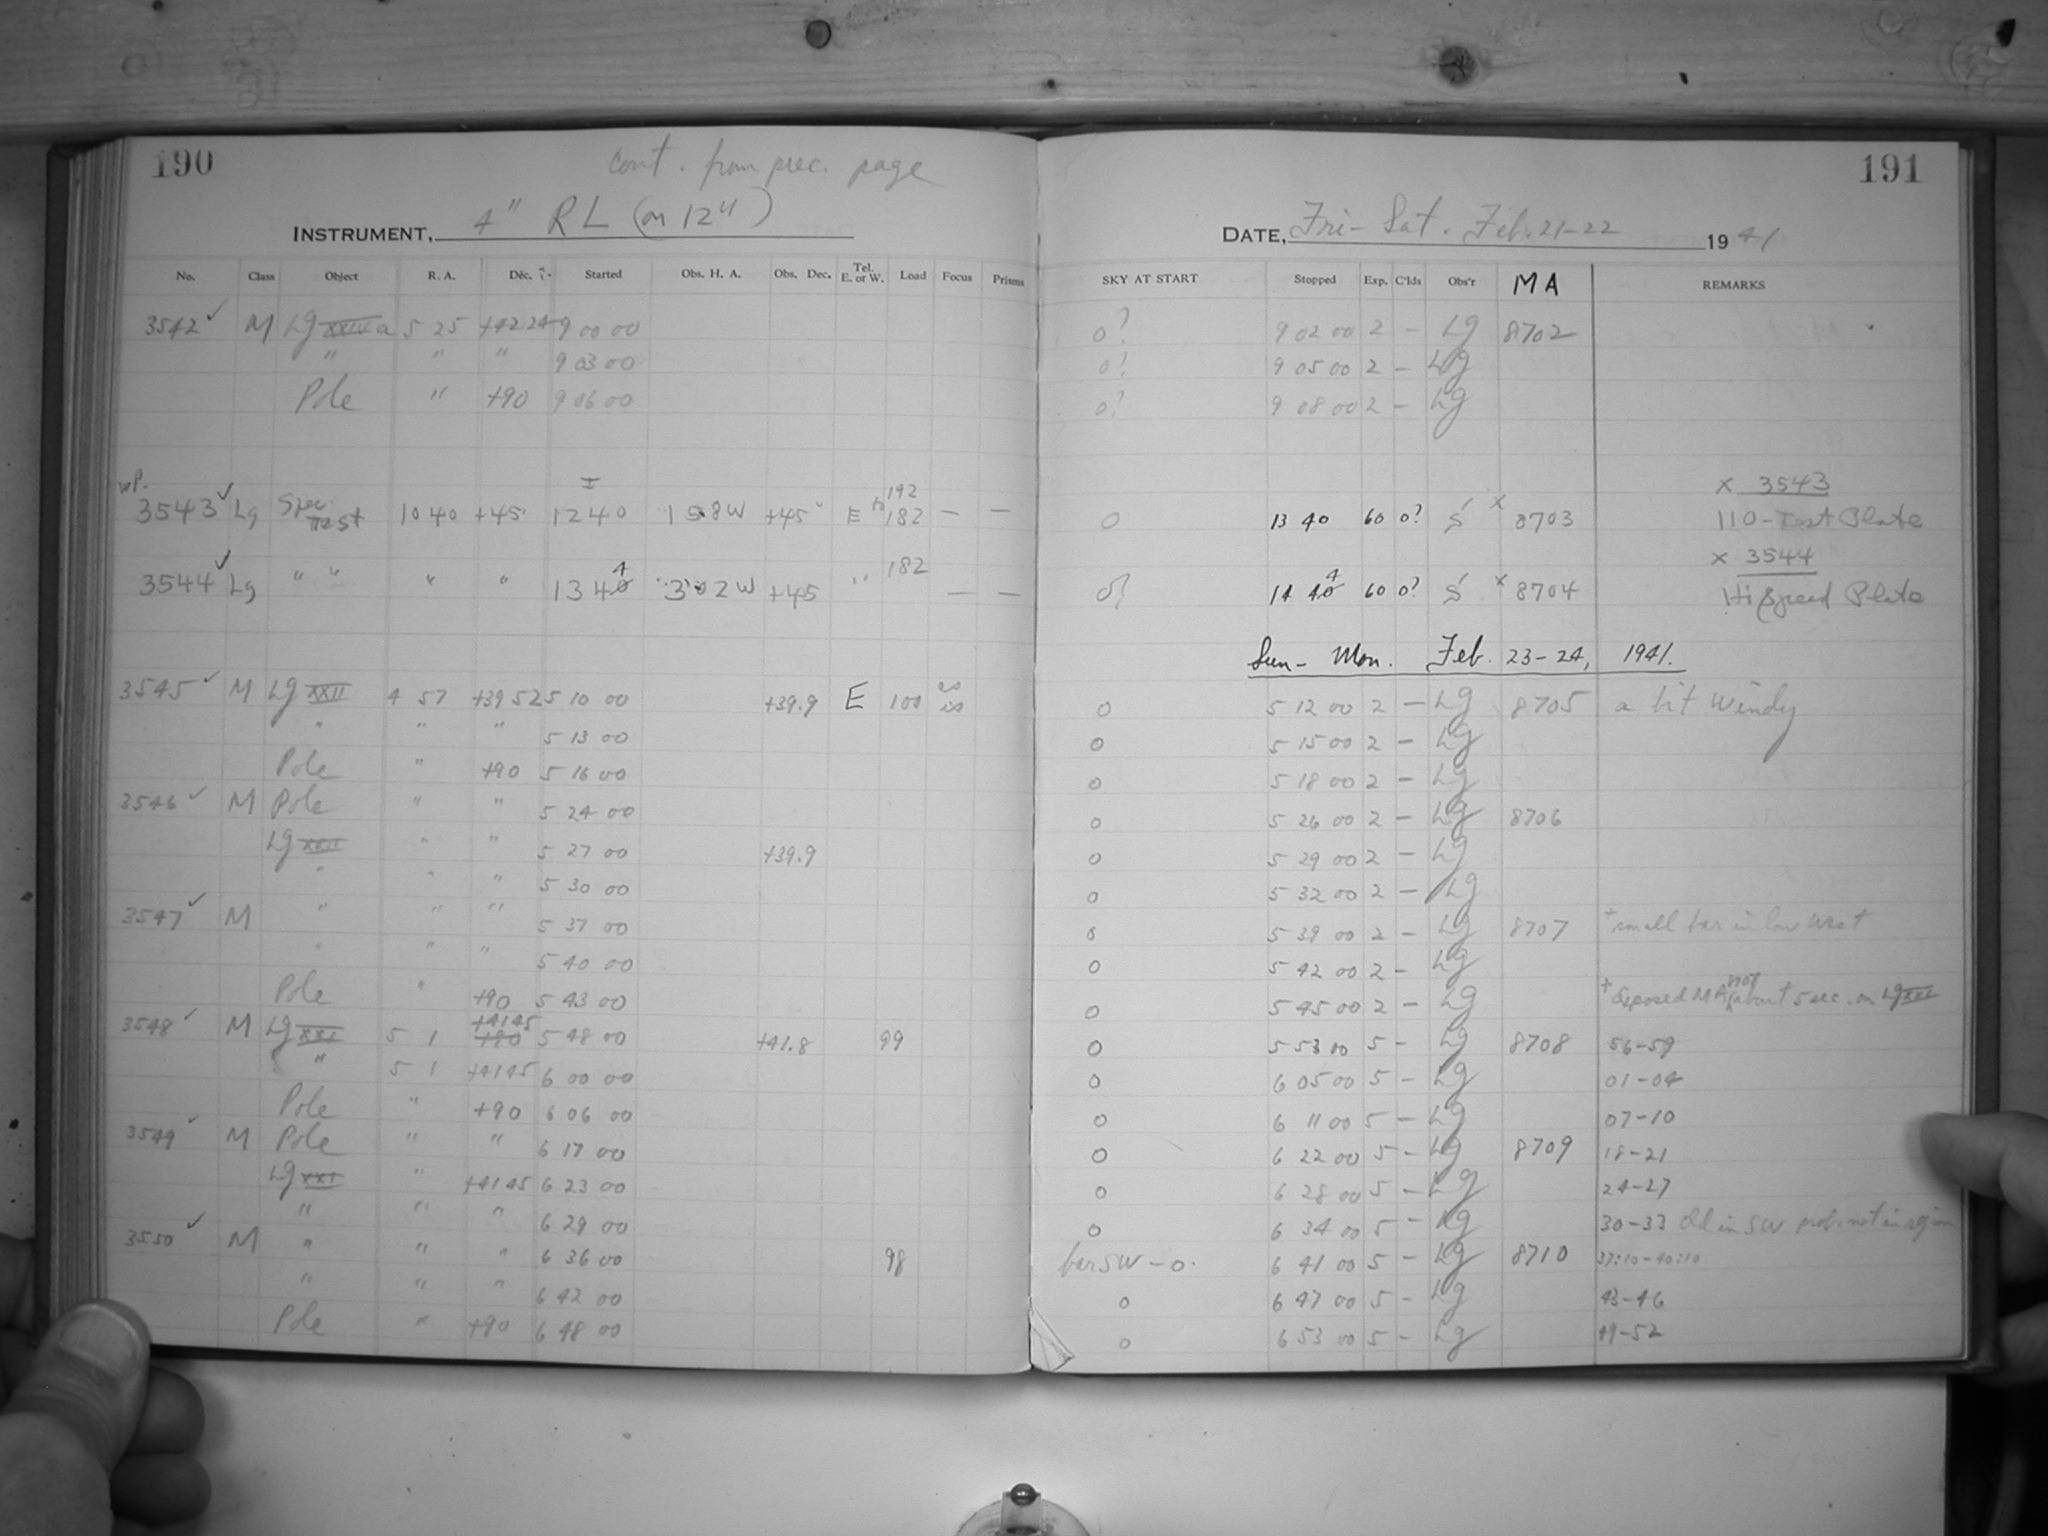 190
cont. from prec. page
INSTRUMENT, 4" RL (on 12")
No. Class Object R. A. Dec. Started Obs. H. A. Obs. Dec. Tel. E. or W. Load Focus Prisms
3542 ✓ M Lg XXIV a 5 25 +42 24 9 00 00
" " " 9 03 00
Pole " +90 9 06 00
I
wP. 192
3543 ✓ Lg Spec. Test 10 40 +45 12 40 1 58 W +45 E 182 — —
182
3544 ✓ Lg " " " " 13 40 4 3 02 W +45 " — —
3545 ✓ M Lg XXII 4 57 +39 52 5 10 00 +39.9 E 100
" " " 5 13 00
Pole " +90 5 16 00
3546 ✓ M Pole " " 5 24 00
Lg XXII " " 5 27 00 +39.9
" " " 5 30 00
3547 ✓ M " " " 5 37 00
" " " 5 40 00
Pole " +90 5 43 00
+41 45
3548 ✓ M Lg XXI 5 1 +90 5 48 00 +41.8 99
" 5 1 +41 45 6 00 00
Pole " +90 6 06 00
3549 ✓ M Pole " " 6 17 00
Lg XXI " +41 45 6 23 00
" " " 6 29 00
3550 ✓ M " " " 6 36 00 98
" " " 6 42 00
Pole " +90 6 48 00
191
DATE, Fri - Sat. Feb. 21-22 1941
SKY AT START Stopped Exp. C'lds Obs'r MA REMARKS
0? 9 02 00 2 — Lg 8702
0? 9 05 00 2 — Lg
0? 9 08 00 2 — Lg
x 3543
0 13 40 60 0? S x 8703 110-Test Plate
x 3544
0? 14 40 4 60 0? S x 8704 Hi Speed Plate
Sun - Mon. Feb. 23-24, 1941.
0 5 12 00 2 — Lg 8705 a bit windy
0 5 15 00 2 — Lg
0 5 18 00 2 — Lg
0 5 26 00 2 — Lg 8706
0 5 29 00 2 — Lg
0 5 32 00 2 — Lg
0 5 39 00 2 — Lg 8707 + small bar in low west
0 5 42 00 2 — Lg
0 5 45 00 2 — Lg + exposed MA 8707 about 5 sec. on Lg XXI
0 5 53 00 5 - Lg 8708 56-59
0 6 05 00 5 - Lg 01-04
0 6 11 00 5 - Lg 07-10
0 6 22 00 5 - Lg 8709 18-21
0 6 28 00 5 - Lg 24-27
0 6 34 00 5 - Lg 30-33 cld in SW prob. not in region
bar SW - 0. 6 41 00 5 - Lg 8710 37:10-40:10
0 6 47 00 5 - Lg 43-46
0 6 53 00 5 - Lg 49-52